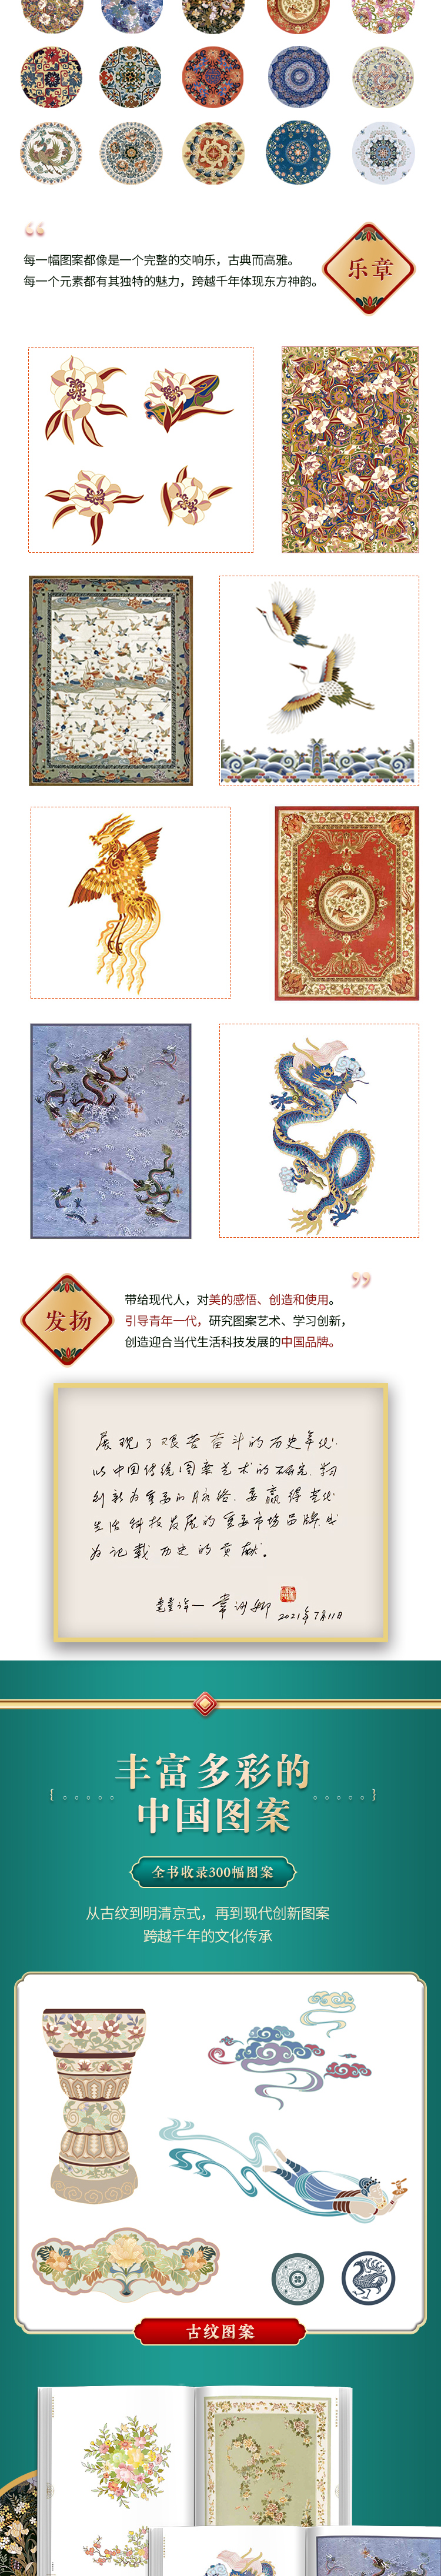 每一幅图案都像是一个完整的交响乐，古典而高雅。
每一个元素都有其独特的魅力，跨越千年体现东方神韵。
乐章
发扬
带给现代人，对美的感悟、创造和使用。
引导青年一代，研究图案艺术、学习创新，
创造迎合当代生活科技发展的中国品牌。
展现了艰苦奋斗的历史年代.
以中国传统图案艺术的研究、
创新为重要的脉络.要赢得当代
生活科技发展的重要市场品牌.成
为记载历史的贡献.
2021年7月11日
丰富多彩的
中国图案
全书收录300幅图案
从古纹到明清京式，再到现代创新图案
跨越千年的文化传承
古纹图案